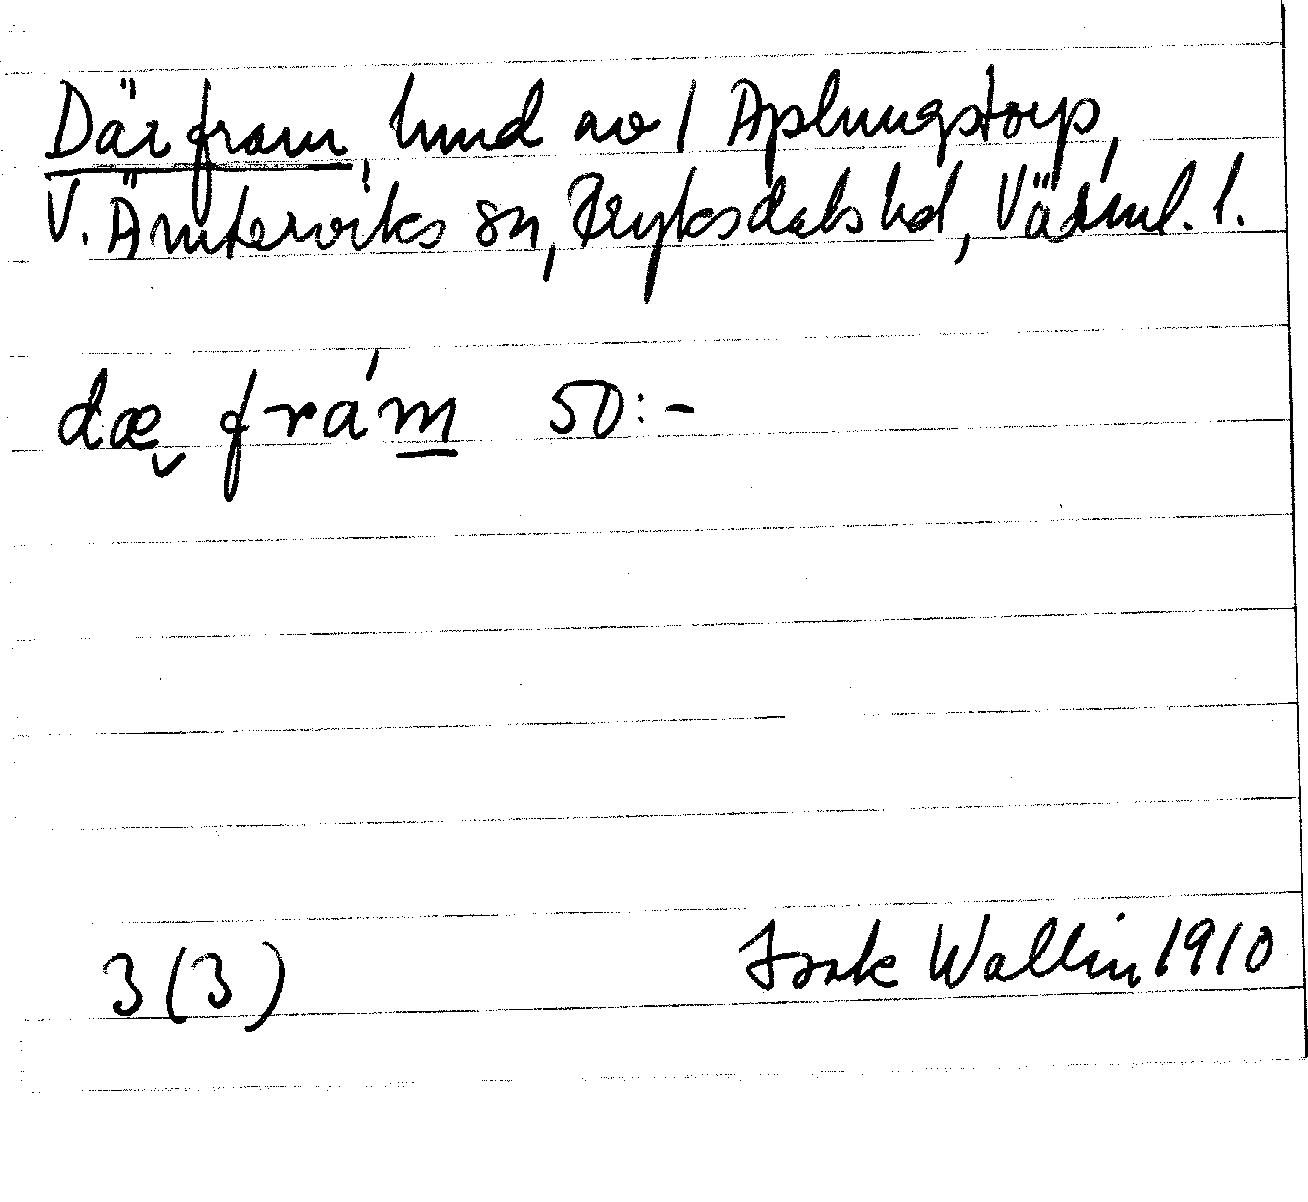 Där fram, hmd av 1 Aplungstorp,
V. Ämterviks sn, Fryksdals hd, Värml. l.
dæ fra´m 50:-
3 (3) Isak Wallin 1910